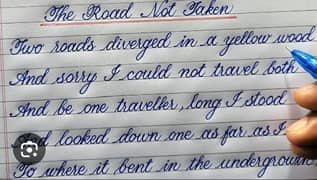 The Road Not Taken
Two roads diverged in a yellow wood
And sorry I could not travel both
And be one traveller, long I stood
looked down one as far as I
To where it bent in the undergrowth